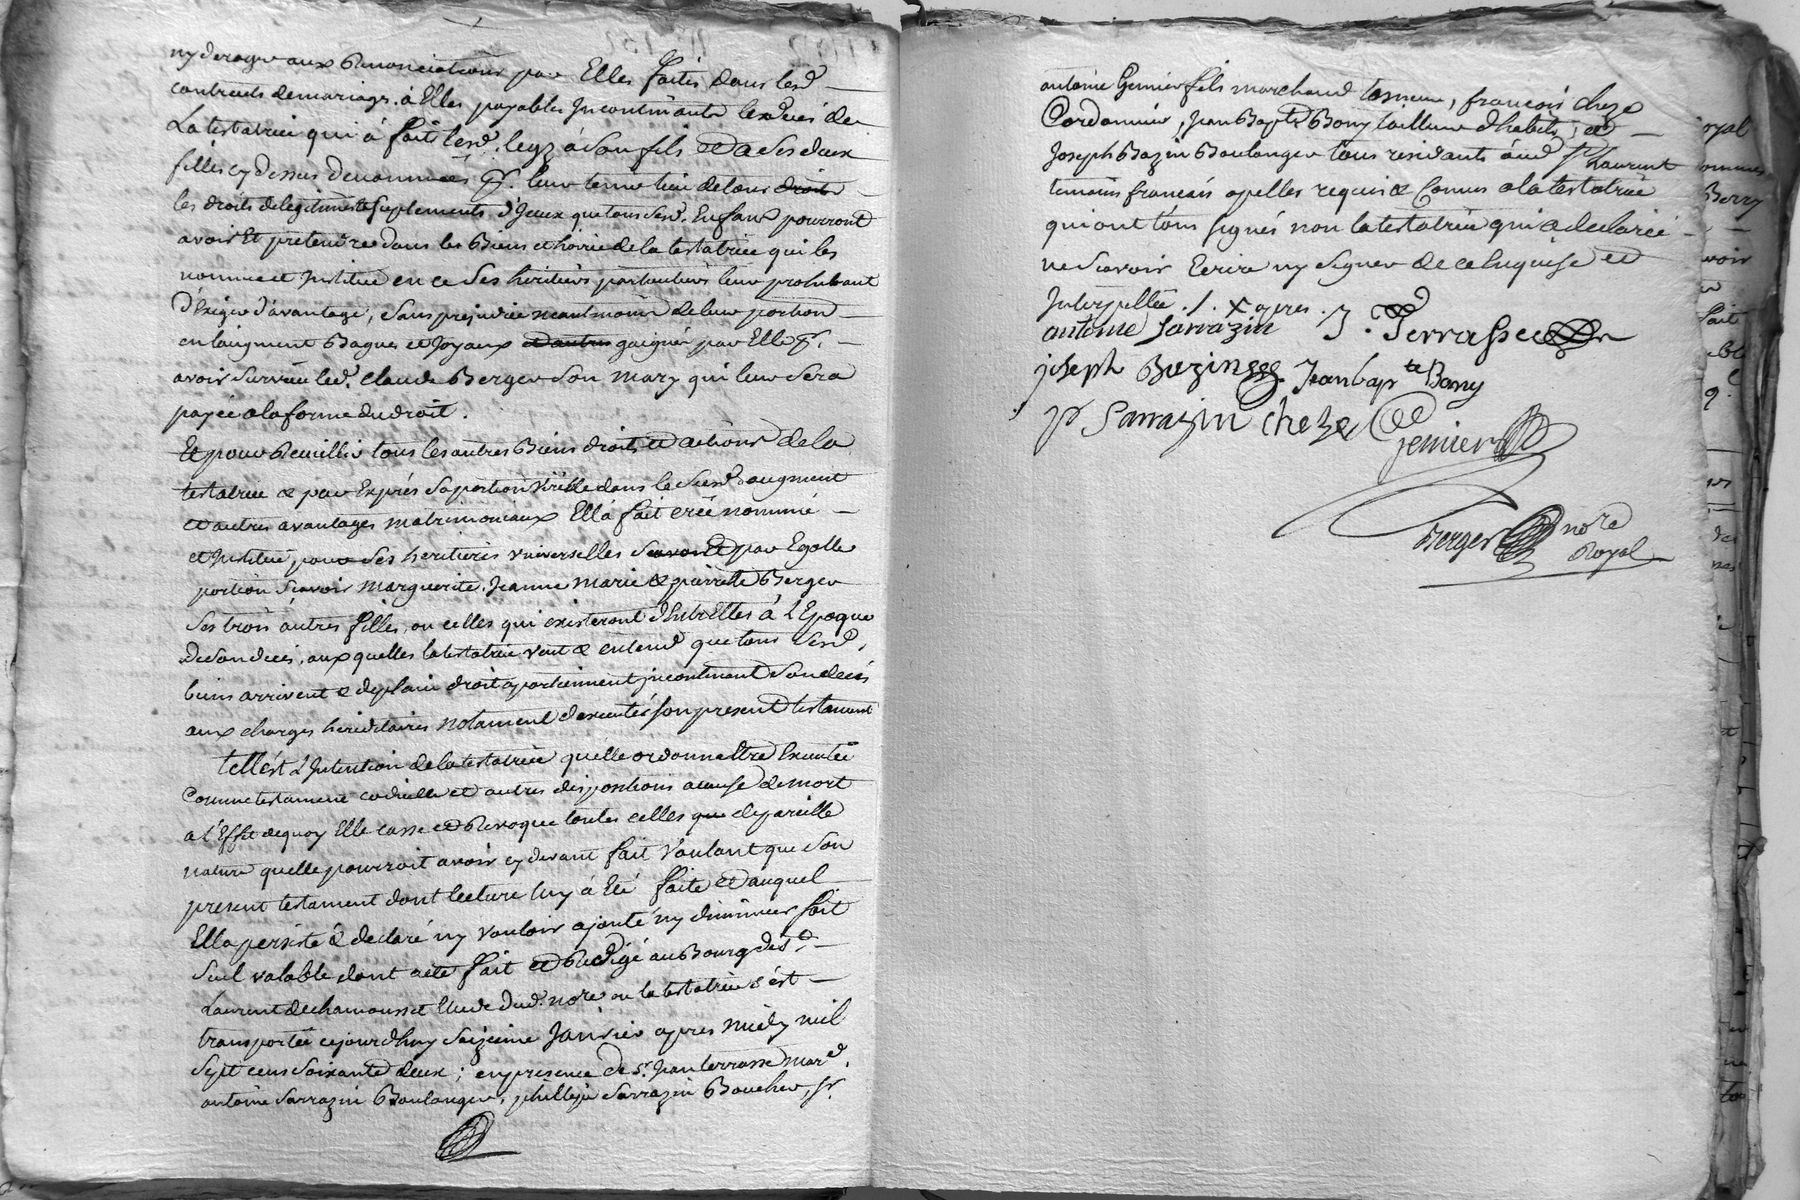 ny deroger aux Renonciations par Elles faites dans lesd.
contracts de mariage. à Elles payables Incontinant le deces de
La testatrice qui à fait lesd. legz à son fils et a ses deux
filles cy dessus denommées pr. leur tenir lieu de tous droits
les droits de legitime et suplements d'Jceux que tous sesd. Enfans pourront
avoir Et pretendre dans les Biens et hoirie de la testatrice qui les
nomme et Institue en ce ses heritiers particuliers leur prohibant
d'Exiger d'avantage, sans prejudice neantmoins de leur portion
en laugment Bagues et Joyaux et autres gaignés par Elle pr.
avoir survécu led. Claude Berger son mary qui leur sera
payée a la forme du droit.
Et pour Recuillir tous les autres Biens droits et actions de la
testatrice & par Exprés sa portion Virille dans le susd. augment
et autres avantages matrimoniaux Ella fait créé nommé
et Institué, pour ses heritieres universelles scavoir et par Egalle
portion scavoir marguerite, Jeanne marie & pierrette Berger
ses trois autres filles, ou celles qui existeront d'Entr'Elles à L'Epoque
de son deces, aux quelles la testatrice veut & entend que tous sesd.
biens arrivent & de plain droit apartiennent incontinent son deces
aux charges hereditaires notament d'executer son present testament
tell'est L'Intention de la testatrice qu'elle ordonne Etre Executée
Comme testament codicille et autres dispositions a cause de mort
a l'Effet de quoy Elle casse et Revoque toutes celles que de pareille
nature quelle pourroit avoir cy devant fait Voulant que son
present testament dont lecture luy à Eté faite et auquel
Ella persisté & declaré ny vouloir ajouté ny diminuer soit
seul valable dont acte fait et Redigé au Bourg de St.
Laurent de chamousset Etude dud. nore ou la testatrice s'est
transportée cejourd'huy seizieme Janvier apres midy mil
sept cens soixante deux; en presence de sr. Jean terrasse mard.
antoine sarrazin Boulanger, philippe sarrazin Boucher, sr.
antoine Gemier fils marchand , françois cheze
Cordonnier, Jean Bapte Bony tailleur d'habits, et
Joseph Bazin Boulanger tous residants aud. St Laurent
temoins français apelles requis & Connus a la testatrice
qui ont tous signés non la testatrice qui a declaré
ne scavoir Ecrire ny signer de ce Enquise et
Interpellée ./. X apres
antoine sarrazin J. Terrasse
joseph Bazin Jean bapte Bony
p sarrazin cheze
gemier
Berger nore
Royal